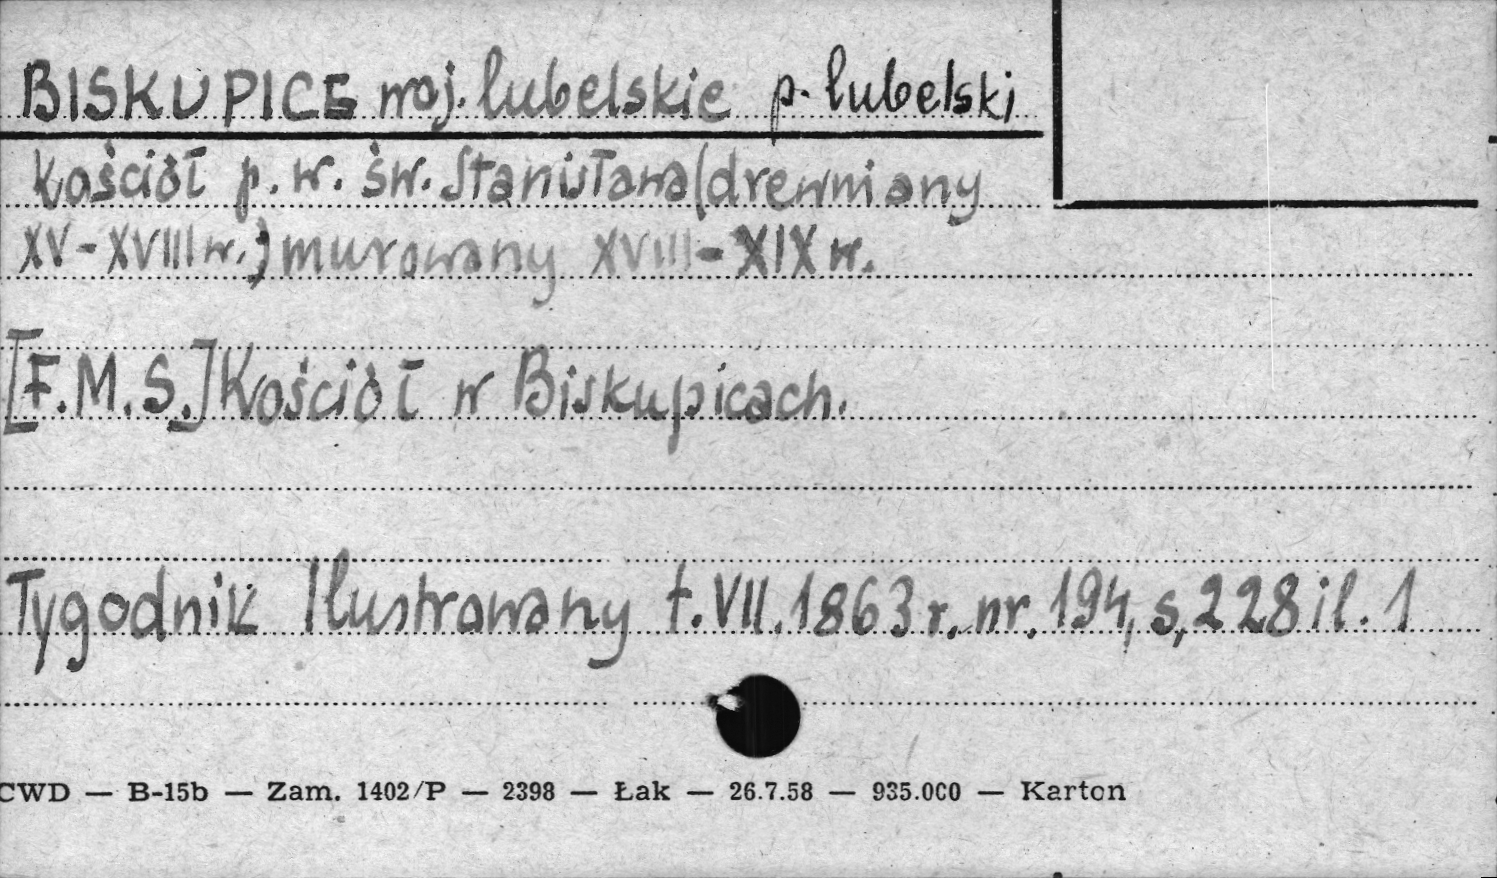 BISKUPICE woj. lubelskie p. lubelski
Kościół p. w. św. Stanisława (drewniany
XV - XVIII w.; murowany XVIII - XIX w.
[F. M. S.] Kościół w Biskupicach.
Tygodnik Ilustrowany t. VII. 1863 r. nr. 194, s, 228 il. 1
CWD — B-15b — Zam. 1402/P — 2398 — Łak — 26.7.58 — 935.000 — Karton